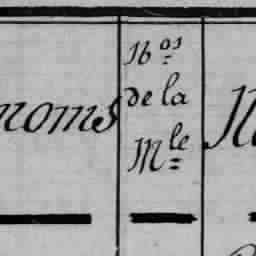 noms
N.os
de la
M.le